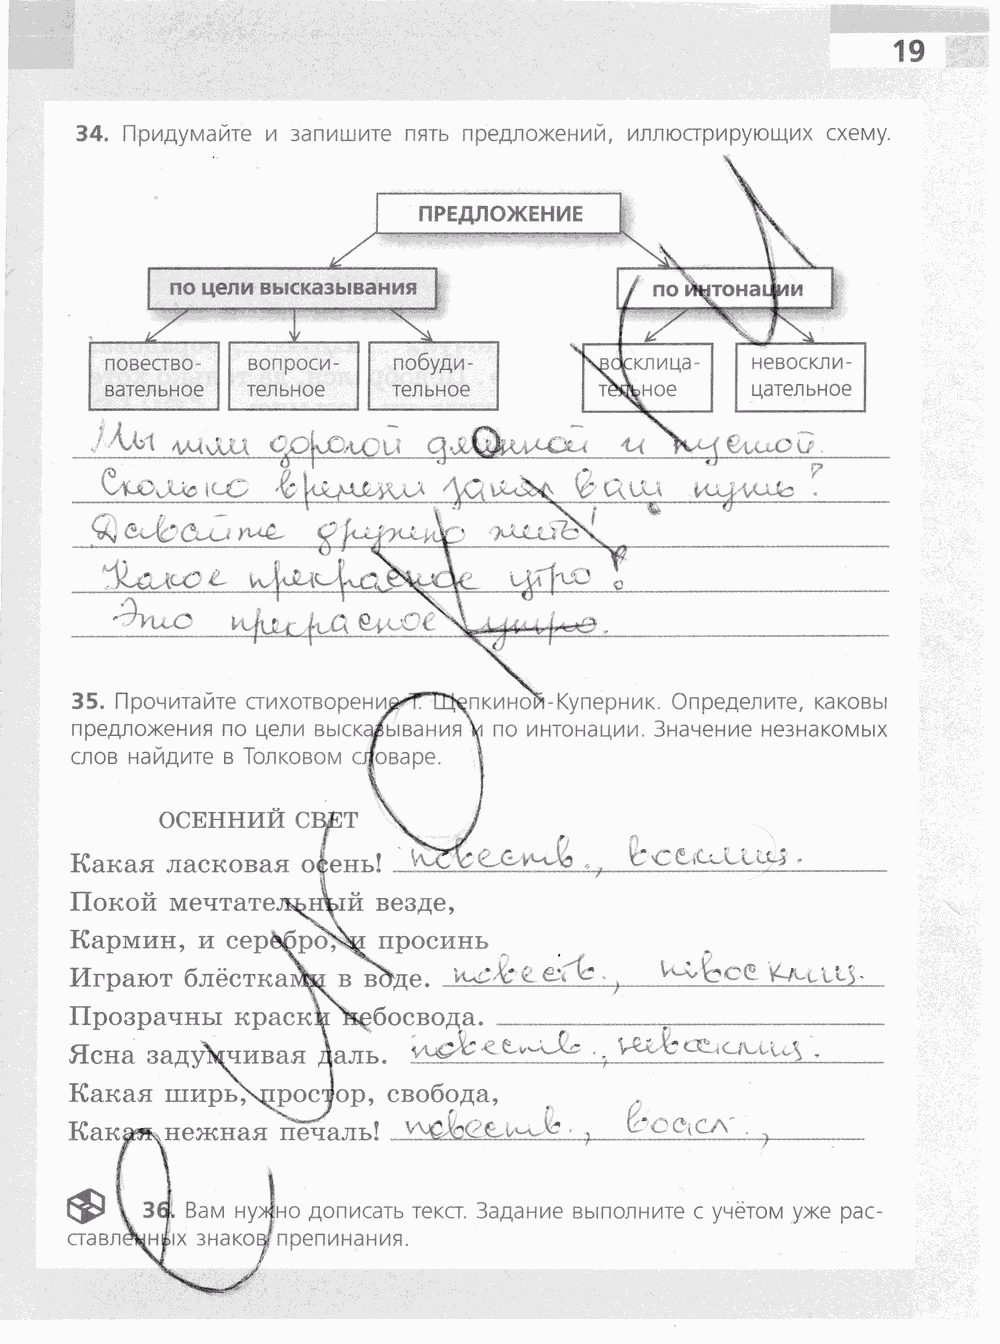 19
34. Придумайте и запишите пять предложений, иллюстрирующих схему.
ПРЕДЛОЖЕНИЕ
по цели высказывания
по интонации
повество-
вательное
вопроси-
тельное
побуди-
тельное
восклица-
тельное
невоскли-
цательное
Мы шли дорогой длинной и пустой.
Сколько времени занял ваш путь?
Давайте дружно жить!
Какое прекрасное утро!
Это прекрасное утро.
35. Прочитайте стихотворение Т. Щепкиной-Куперник. Определите, каковы
предложения по цели высказывания и по интонации. Значение незнакомых
слов найдите в Толковом словаре.
ОСЕННИЙ СВЕТ
Какая ласковая осень! повеств., восклиц.
Покой мечтательный везде,
Кармин, и серебро, и просинь
Играют блёстками в воде. повеств., невосклиц.
Прозрачны краски небосвода.
Ясна задумчивая даль. повеств., невосклиц.
Какая ширь, простор, свобода,
Какая нежная печаль! повеств., воскл.,
36. Вам нужно дописать текст. Задание выполните с учётом уже рас-
ставленных знаков препинания.